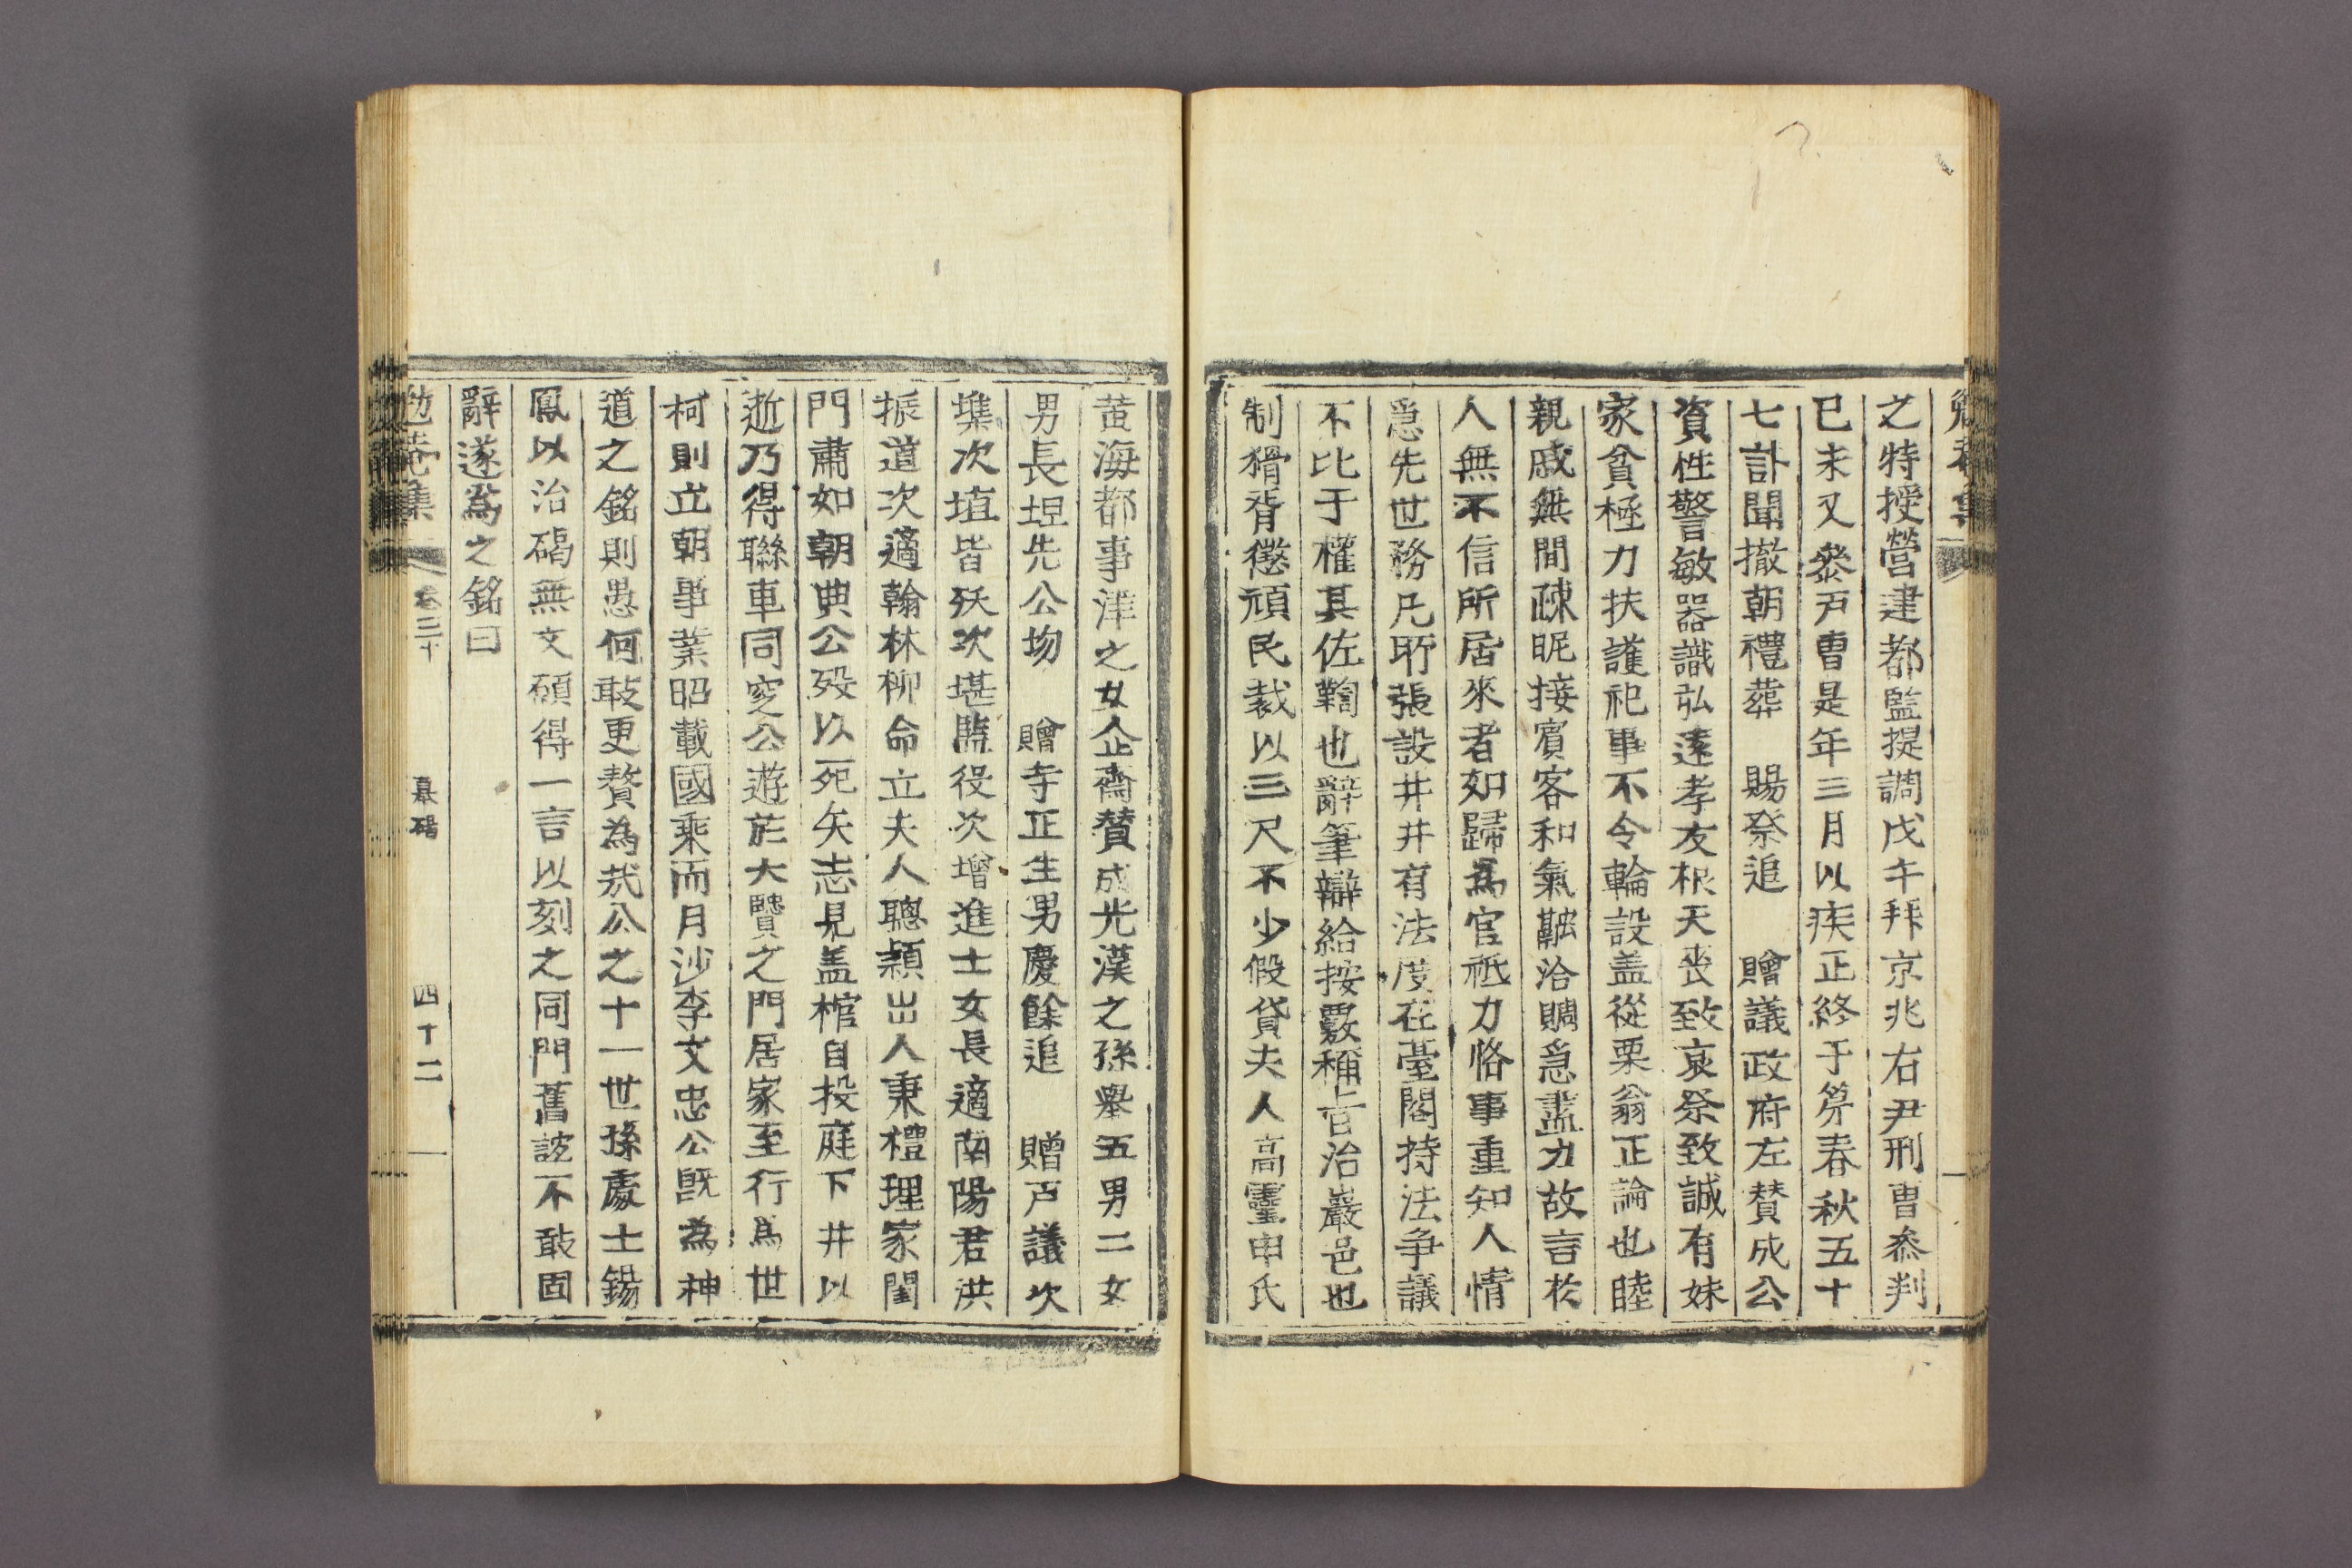 勉菴集
之特授營建都監提調戊午拜京兆右尹刑曹叅判
己未又叅戶曹是年三月以疾正終于第春秋五十
七訃聞撤朝禮葬 賜祭追 贈議政府左賛成公
資性警敏器識弘遠孝友根天喪致哀祭致誠有妹
家貧極力扶護祀事不令輪設盖從栗翁正論也睦
親戚無間疎昵接賓客和氣融洽賙急盡力故言於
人無不信所居來者如歸爲官祗力恪事重知人情
急先世務凡所張設井井有法度在臺閣持法爭議
不比于權其佐鞫也辭筆辯給按覈稱旨治巖邑也
制猾胥懲頑民裁以三尺不少假貸夫人高靈申氏
黃海都事洋之女企齋賛成光漢之孫擧五男二女
男長垾先公圽 贈寺正生男慶餘追 贈戶議次
㙫次埴皆殀次堪縣役次增進士女長適南陽君洪
振道次適翰林柳命立夫人聰穎出人秉禮理家閨
門肅如朝典公歿以死矢志見盖棺自投庭下井以
逝乃得聯車同窆公遊於大賢之門居家至行爲世
柯則立朝事業昭載國乘而月沙李文忠公旣爲神
道之銘則愚何敢更贅爲哉公之十一世孫處士錫
鳳以治碣無文願得一言以刻之同門舊誼不敢固
辭遂爲之銘曰
勉菴集 卷三十 墓碣 四十二